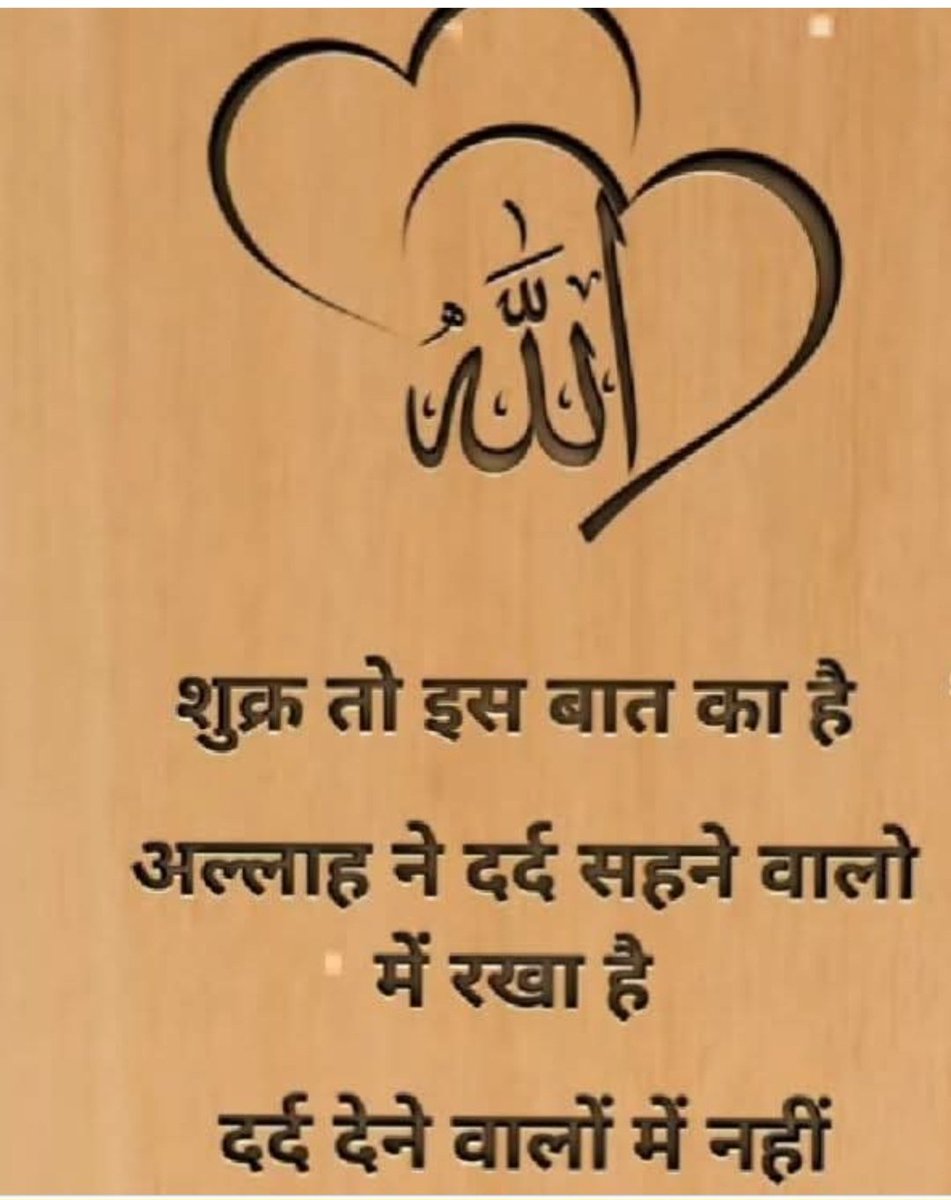 اللّٰهُ
शुक्र तो इस बात का है
अल्लाह ने दर्द सहने वालो
में रखा है
दर्द देने वालों में नहीं